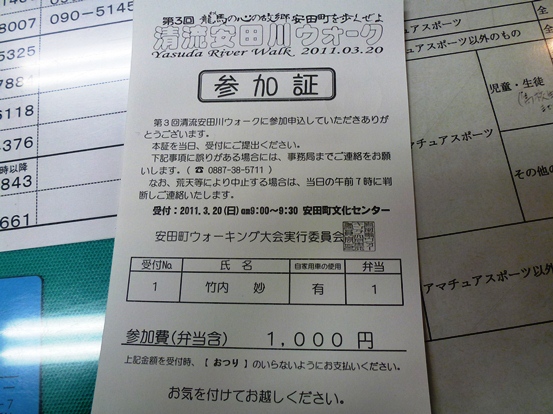 第3回 龍馬の心の故郷 安田町を歩くぜよ
清流安田川ウォーク
Yasuda River Walk 2011.03.20
参加証
第3回清流安田川ウォークに参加申込していただきありが
とうございます。
本証を当日、受付にご提出ください。
下記事項に誤りがある場合には、事務局までご連絡をお願
いします。(☎ 0887-38-5711)
なお、荒天等により中止する場合は、当日の午前7時に判
断しご連絡いたします。
受付:2011.3.20(日)am9:00~9:30 安田町文化センター
安田町ウォーキング大会実行委員会
受付No. 氏 名 自家用車の使用 弁当
1 竹内 妙 有 1
参加費(弁当含) 1,000 円
上記金額を受付時、【おつり】のいらないようにお支払いください。
お気を付けてお越しください。
8007
090-5145
5325
5118
4376
時以降
843
661
アマチュアスポーツ
アマチュアスポーツ以外のもの
児童・生徒
マチュアスポーツ
その他の
アマチュアスポーツ以外
全